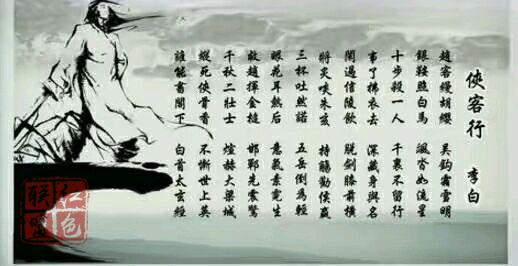 俠客行 李白
趙客縵胡纓 吳鈎霜雪明
銀鞍照白馬 颯沓如流星
十步殺一人 千裏不留行
事了拂衣去 深藏身與名
閑過信陵飲 脫劍膝前橫
將炙啖朱亥 持觴勸侯嬴
三杯吐然諾 五岳倒為輕
眼花耳熱后 意氣素霓生
救趙揮金槌 邯鄲先震驚
千秋二壯士 煊赫大梁城
縱死俠骨香 不慚世上英
誰能書閣下 白首太玄經
红色
联盟